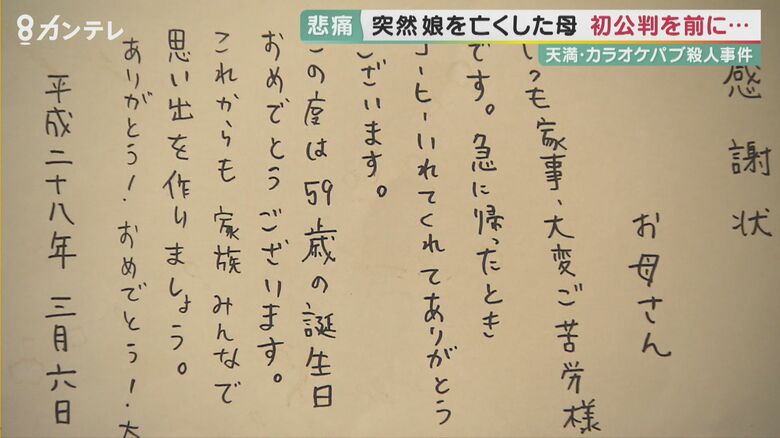 8カンテレ
悲痛
突然 娘を亡くした母 初公判を前に…
天満・カラオケパブ殺人事件
感謝状
お母さん
いつも家事、大変ご苦労様
です。急に帰ったとき
コーヒーいれてくれてありがとう
ございます。
この度は59歳の誕生日
おめでとうございます。
これからも家族みんなで
思い出を作りましょう。
ありがとう!おめでとう!大
平成二十八年 三月六日